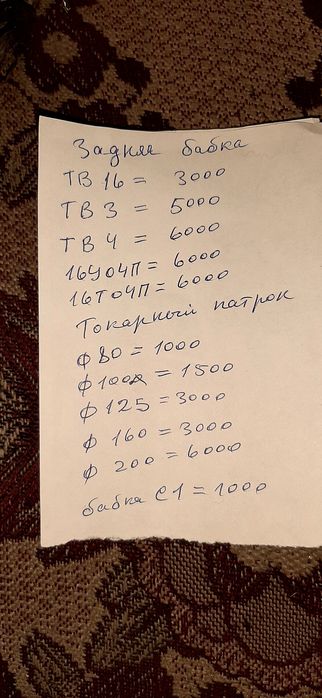 Задняя бабка
ТВ 16 = 3000
ТВ 3 = 5000
ТВ 4 = 6000
16У04П = 6000
16Т04П = 6000
Токарный патрон
ф 80 = 1000
ф 100 = 1500
ф 125 = 3000
ф 160 = 3000
ф 200 = 6000
бабка С1 = 1000